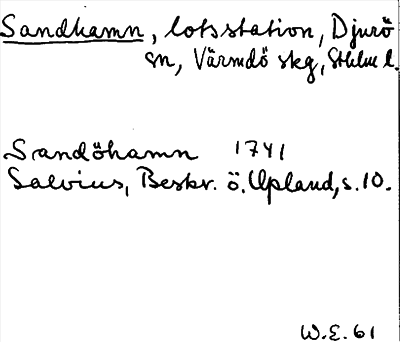 Sandhamn, lotsstation, Djurö
sn, Värmdö skg, Sthlms l.
Sandöhamn 1741
Salvius, Beskr. ö. Upland, s. 10.
W.E. 61